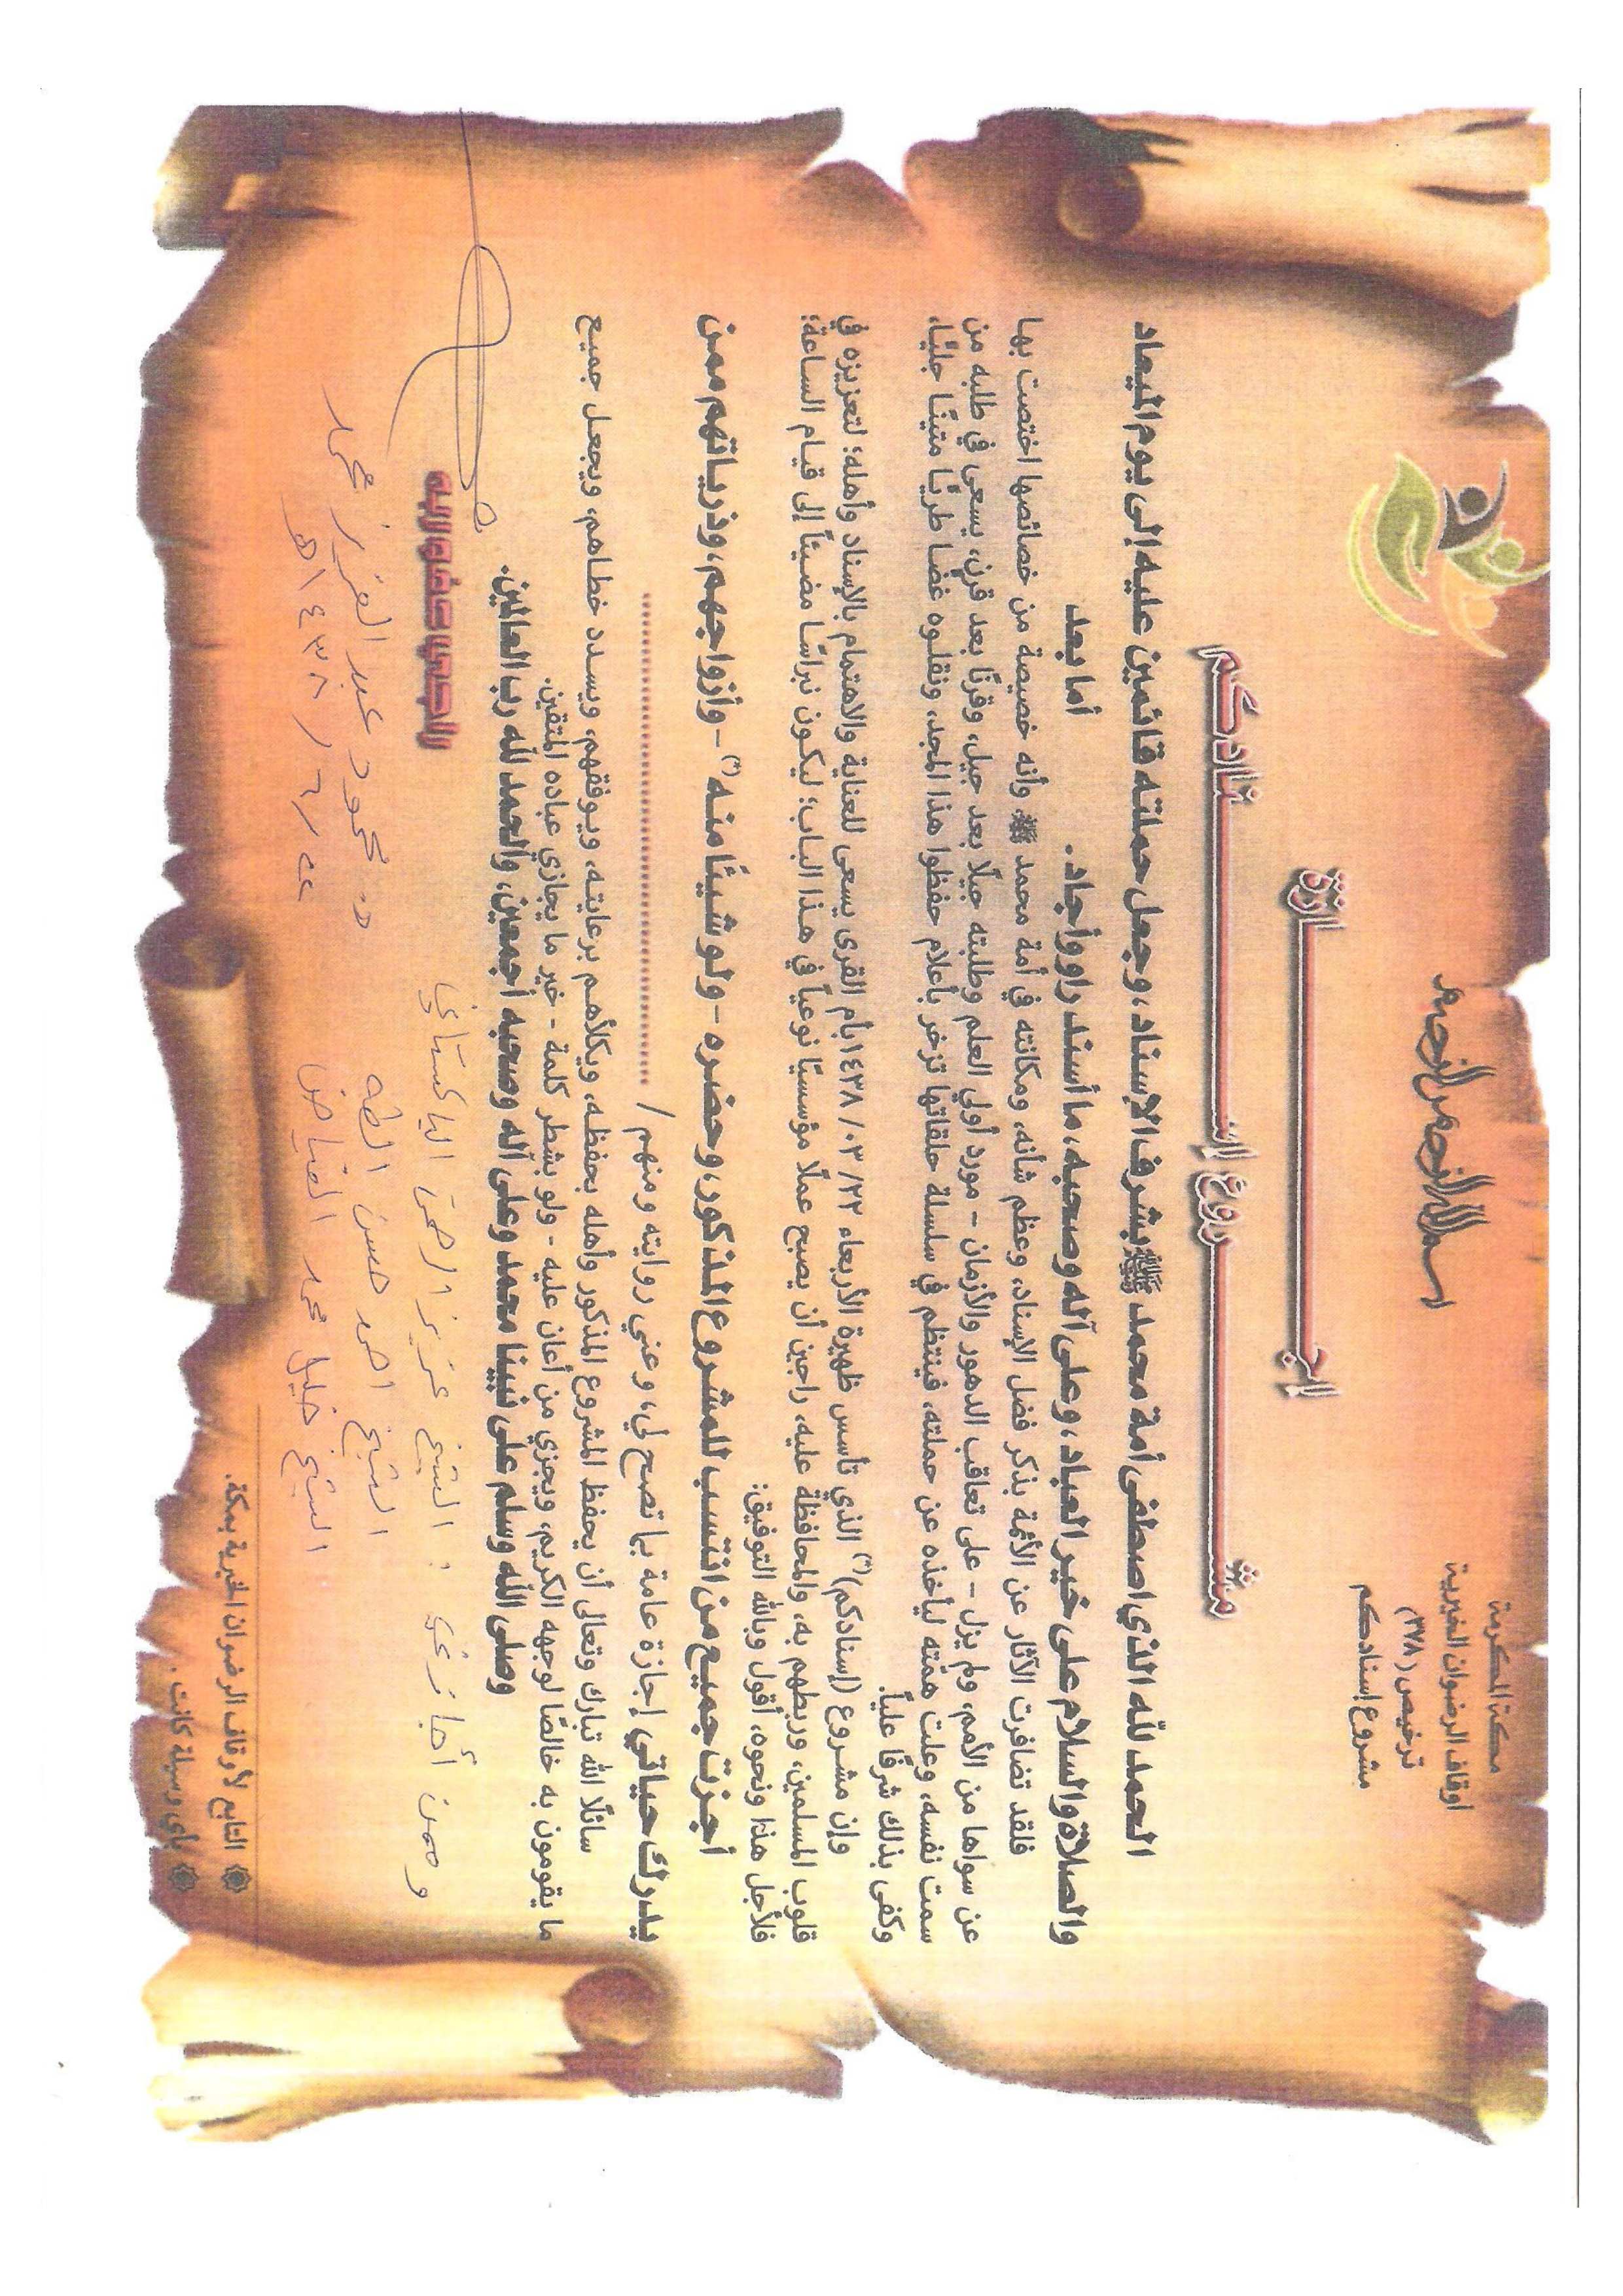 مكة المكرمة
أوقاف الرضوان الخيرية
ترخيص (٣٧٨)
مشروع إسنادكم
بسم الله الرحمن الرحيم
إجـــازة
مشـــروع إســـنادكم
الحمد لله الذي اصطفى أمة محمد ﷺ بشرف الإسناد، وجعل حملته قائمين عليه إلى يوم الميعاد
والصلاة والسلام على خير العباد، وعلى آله وصحبه، ما أسند راو وأجاد. أما بعد
فلقد تضافرت الآثار عن الأئمة بذكر فضل الإسناد، وعظم شأنه، ومكانته في أمة محمد ﷺ وأنه خصيصة من خصائصها اختصت بها
عن سواها من الأمم، ولم يزل - على تعاقب الدهور والأزمان - مورد أولي العلم وطلبته جيلًا بعد جيل، وقرنًا بعد قرن، يسعى في طلبه من
سمت نفسه، وعلت همّته ليأخذه عن حملته، فينتظم في سلسلة حلقاتها تزخر بأعلام حفظوا هذا المجد، ونقلوه غضا طريًا متينًا جليًا،
وكفى بذلك شرفًا عليًا.
وإن مشروع (إسنادكم)(*) الذي تأسس ظهيرة الأربعاء ٢٢/ ٠٣/ ١٤٣٨ بأم القرى يسعى للعناية والاهتمام بالإسناد وأهله؛ لتعزيزه في
قلوب المسلمين، وربطهم به، والمحافظة عليه، راجين أن يصبح عملًا مؤسسيًا نوعياً في هذا الباب؛ ليكون نبراسًا مضيئاً إلى قيام الساعة؛
فلأجل هذا ونحوه، أقول وبالله التوفيق:
أجزت جميع من انتسب للمشروع المذكور، وحضره - ولو شيئًا منه(*) - وأزواجهم، وذرياتهم ممن
يدرك حياتي إجازة عامة بما تصح لي، وعني روايته ومنهم / ..........................
سائلًا الله تبارك وتعالى أن يحفظ المشروع المذكور وأهله بحفظه، ويكلأهم برعايته، ويوفقهم، ويسدد خطاهم، ويجعل جميع
ما يقومون به خالصًا لوجهه الكريم، ويجزي من أعان عليه - ولو بشطر كلمة - خير ما يجازي عباده المتقين.
وصلى الله وسلم على نبينا محمد وعلى آله وصحبه أجمعين، والحمد لله رب العالمين.
وممن أجازني : الشيخ عزيز الرحمن الباكستاني
الراجي عفو ربه
الشيخ احمد حسن الطه
د. محمود عبد العزيز محمد
الشيخ خليل محمد الفياض
٢٤ / ٦ / ١٤٣٨هـ
التابع لأوقاف الرضوان الخيرية بمكة.
بأي وسيلة كانت.